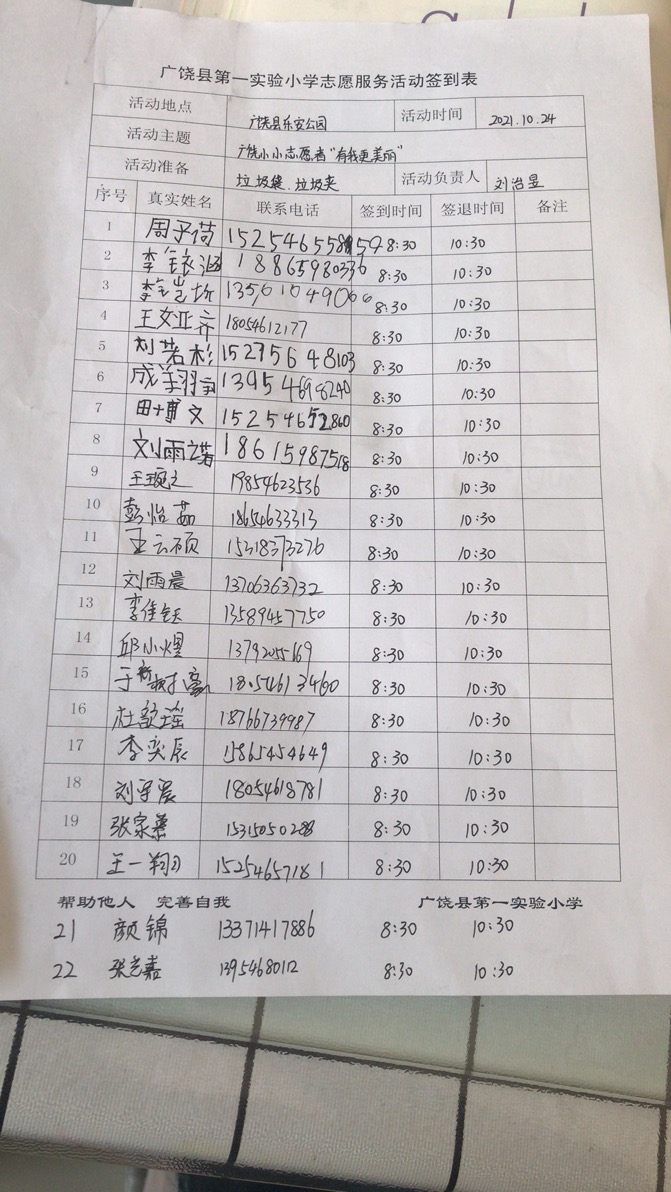 广饶县第一实验小学志愿服务活动签到表
活动地点 广饶县乐安公园 活动时间 2021.10.24
活动主题 广饶小小志愿者"有我更美丽"
活动准备 垃圾袋、垃圾夹 活动负责人 刘治昱
序号 真实姓名 联系电话 签到时间 签退时间 备注
1 周子荷 8:30 10:30
2 李 涵 18865980336 8:30 10:30
3 李 8:30 10:30
4 王文亚齐 18054612177 8:30 10:30
5 刘若杉 15275648103 8:30 10:30
6 成 羽 13954698240 8:30 10:30
7 田博文 15254652860 8:30 10:30
8 刘雨诺 18615987518 8:30 10:30
9 王琬之 19854623536 8:30 10:30
10 彭怡茹 18654633313 8:30 10:30
11 王云硕 15318373276 8:30 10:30
12 刘雨晨 13706363732 8:30 10:30
13 李佳钰 13589457750 8:30 10:30
14 邱小煜 13792055169 8:30 10:30
15 于 树豪 18054613460 8:30 10:30
16 杜歆瑶 18766739987 8:30 10:30
17 李奕辰 15865454649 8:30 10:30
18 刘宇宸 18054618781 8:30 10:30
19 张家 15315050288 8:30 10:30
20 王一翔 15254657181 8:30 10:30
帮助他人 完善自我 广饶县第一实验小学
21 颜锦 13371417886 8:30 10:30
22 张 嘉 13954680112 8:30 10:30